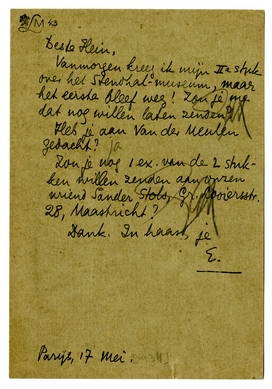 Beste Hein,
Vanmorgen kreeg ik mijn IIe stuk
over het Stendhal-museum, maar
het eerste bleef weg! Zou je me
dat nog willen laten zenden?
Heb je aan Van der Meulen
gedacht? Ja
Zou je nog 1 ex. van de 2 stuk-
ken willen zenden aan onzen
vriend Sander Stols, Gr. Looiersstr.
28, Maastricht?
Dank. In haast, je
E.
Parijs, 17 Mei.